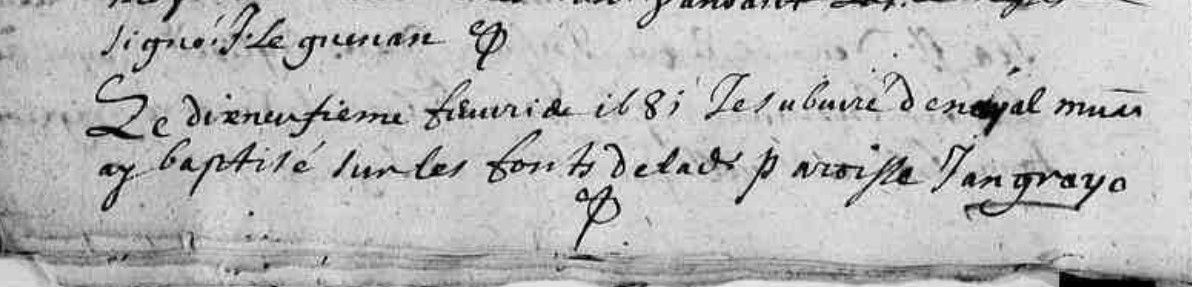 signé: J: Le guenan
Le dixneufieme feuvrie 1681 Je subcuré de noyal muz
ay baptisé sur les fonts de lad: paroisse Jan grayo